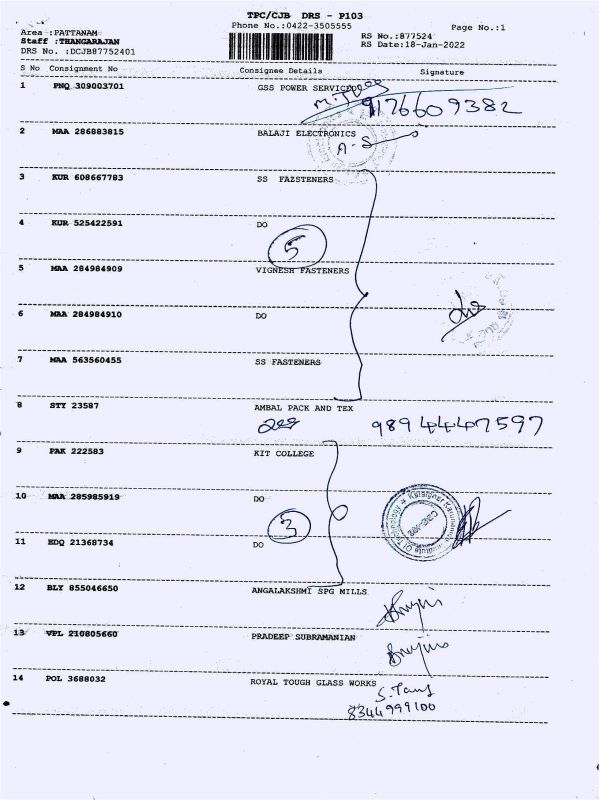 TPC/CJB DRS - P103
Phone No.:0422-3505555
Page No.:1
Area :PATTANAM
Staff :THANGARAJAN
DRS No. :DCJB87752401
RS No.:877524
RS Date:18-Jan-2022
S No Consignment No Consignee Details Signature
1 PNQ 309003701 GSS POWER SERVICE
9176609382
2 MAA 286883815 BALAJI ELECTRONICS
A.S
3 KUR 608667783 SS FAZSTENERS
4 KUR 525422591 DO
5
5 MAA 284984909 VIGNESH FASTENERS
6 MAA 284984910 DO
7 MAA 563560455 SS FASTENERS
8 STY 23587 AMBAL PACK AND TEX
98944447597
9 PAK 222583 KIT COLLEGE
10 MAA 285985919 DO
3
11 EDQ 21368734 DO
Kalaignar Karunanidhi Institute Of Technology
12 BLY 855046650 ANGALAKSHMI SPG MILLS
13 VPL 210805660 PRADEEP SUBRAMANIAN
14 POL 3688032 ROYAL TOUGH GLASS WORKS
8344999100